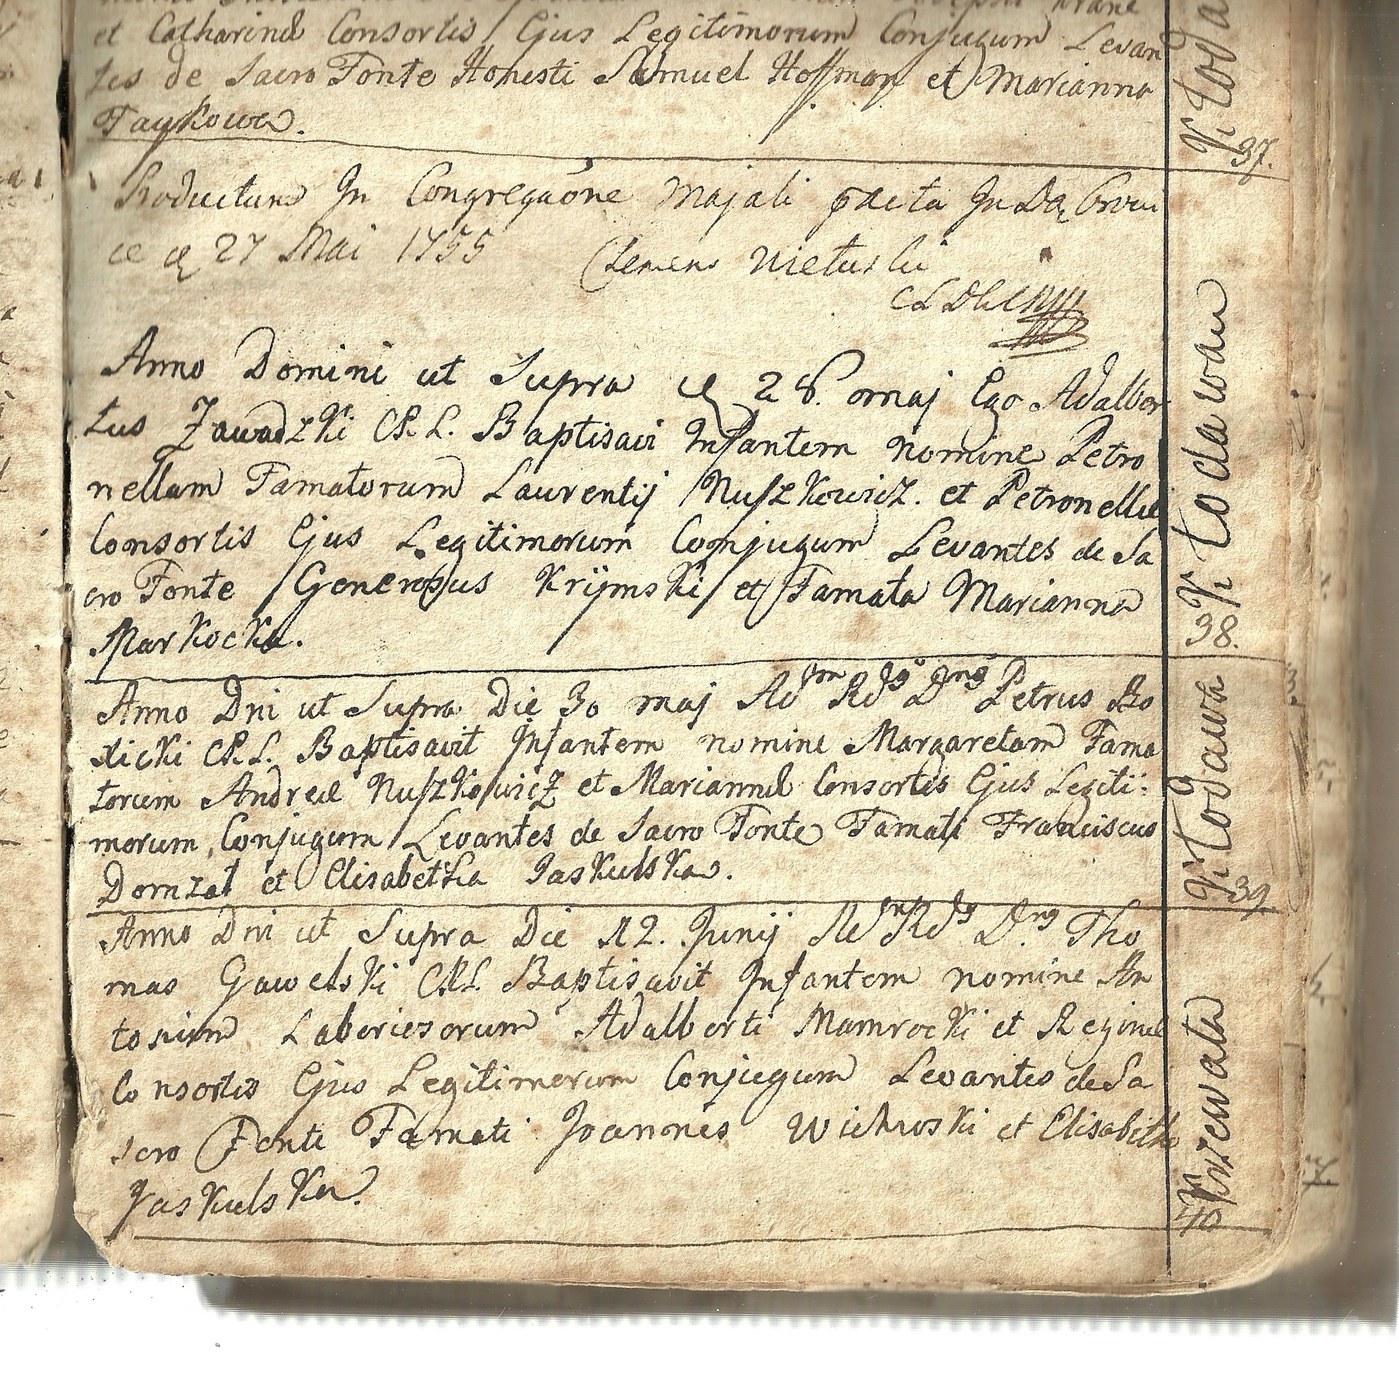 et Catharinæ Consortis Ejus Legitimorum Conjugum Levan
tes de Sacro Fonte Honesti Samuel Hoffman et Marianna
Taykowa.
37.
Productum In Congregaone Majali facta In
27 Mai 1755 Clemens Nietuski
Anno Domini ut Supra d 28. maj Ego Adalber
tus Zawadzki CRL. Baptisavi Infantem nomine Petro
nellam Famatorum Laurentij Nuszkowicz. et Petronellæ
Consortis Ejus Legitimorum Conjugum Levantes de Sa
cro Fonte Generosus Krijmski et Famata Marianna
Markocka.
Kłodawa
38.
Anno Dni ut Supra Die 30 maj Adm Rds Dns Petrus Bo
dicki CRL. Baptisavit Infantem nomine Margaretam Fama
torum Andreæ Nuszkowicz et Mariannæ Consortis Ejus Legiti:
morum Conjugum Levantes de Sacro Fonte Famati Franciscus
Domzał et Elisabetha Jaskulska.
Kłodawa
39
Anno Dni ut Supra Die 12. Junij Adm Rds Dns Tho
mas Gawelski CRL Baptisavit Infantem nomine An
tonium Laboriosorum Adalberti Mamrocki et Reginæ
Consortis Ejus Legitimorum Conjugum Levantes de Sa
cro Fonte Famati Joannes Wichroski et Elisabetha
Jaskulska.
40